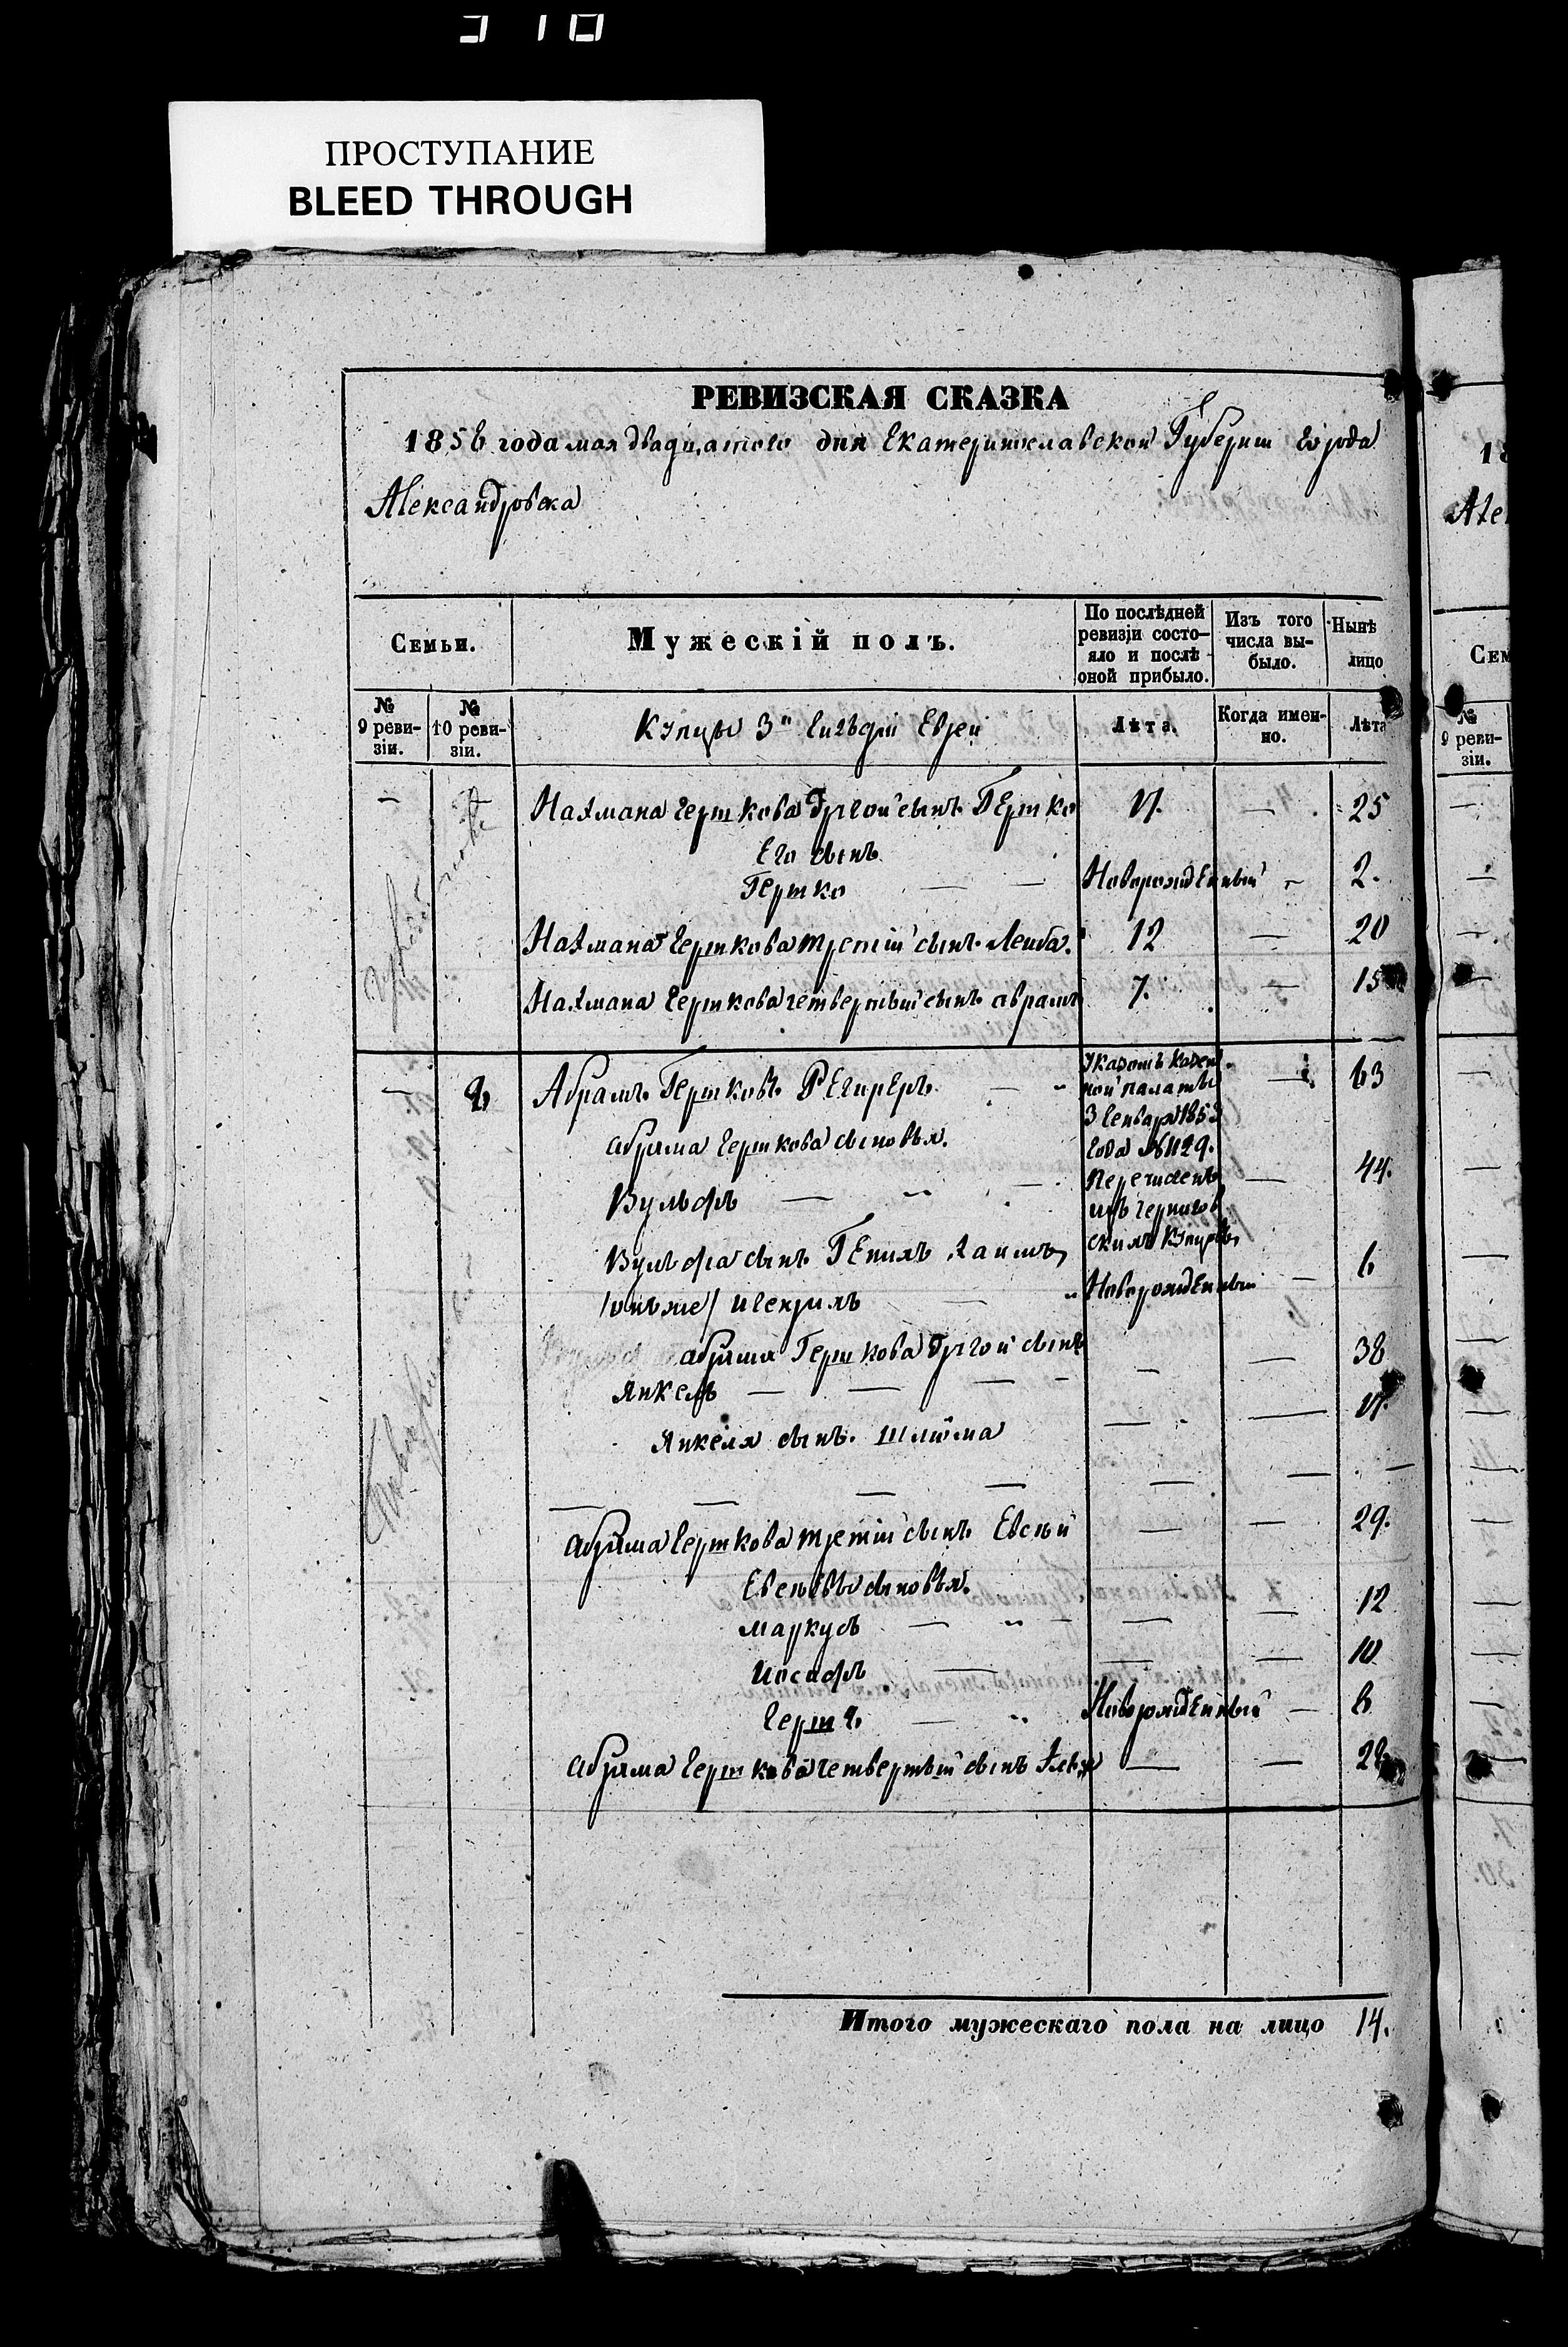 ПРОСТУПАНИЕ
BLEED THROUGH
РЕВИЗСКАЯ СКАЗКА
1856 года мая двадцатого дня Екатеринославской Губернии города
Александровска
Семьи.
Мужескій полъ.
По послѣдней ревизіи состо-яло и послѣ оной прибыло.
Изъ того числа вы-было.
Нынѣ лицо
№ 9 реви-зіи.
№ 10 реви-зіи.
Купцы 3й Гильдіи Евреи
Лѣта.
Когда имен-но.
Лѣта
— Нахмана Гершкова другой сынъ Гершко 17. — 25
Его сынъ
Гершко — — Новорожденный — 2.
Нахмана Гершкова третій сынъ Лейба. 12 — 20
Нахмана Гершкова четвертый сынъ Абрамъ 7. — 15
— Абрамъ Гершковъ — 63
Указомъ Казен
ной палаты
3 Генваря 1853
года № 1129.
Перечисленъ
изъ Чернигов
скихъ Купцовъ
Абрама Гершкова сыновья.
Вульфъ — — — 44.
Вульфа сынъ Генихъ Хаимъ 6
/онъ же/ — Новорожденный —
Абрама Гершкова другой сынъ — — 38
Янкель — — — -
Янкеля сынъ Шлёма — — 17.
— — — — — — —
Абрама Гершкова третій сынъ Евсѣй — — 29.
Евсѣевы сыновья.
Маркусъ — — — 12
Иосифъ — — — 10
Герш — Новорожденный — 6
Абрама Гершкова четвертый сынъ — —
Итого мужескаго пола на лицо 14.
18
Але
Сем
№ 9 реви-зіи.